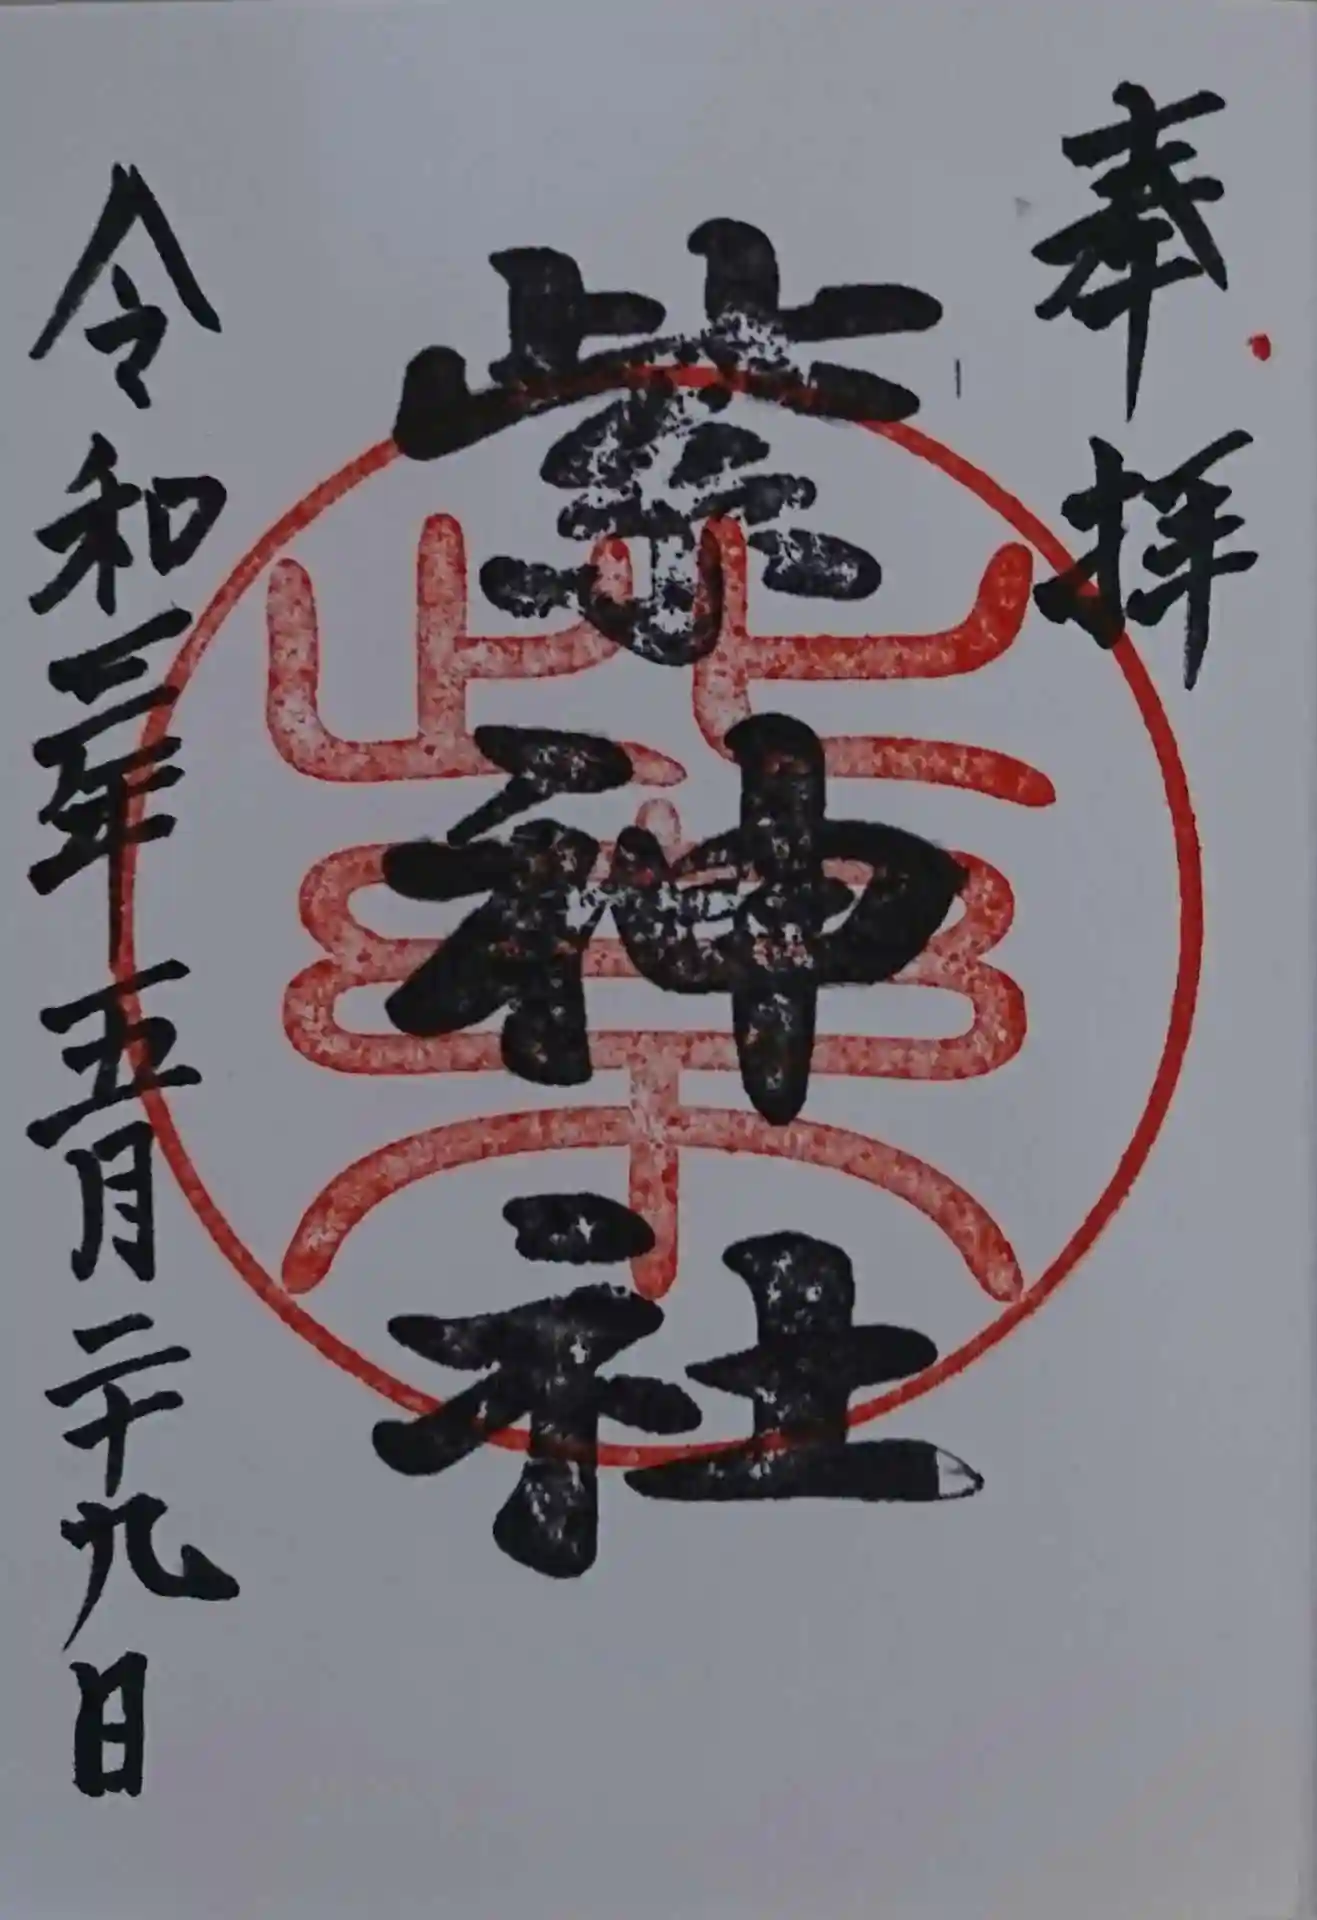 奉拝
紫神社
令和三年五月二十九日